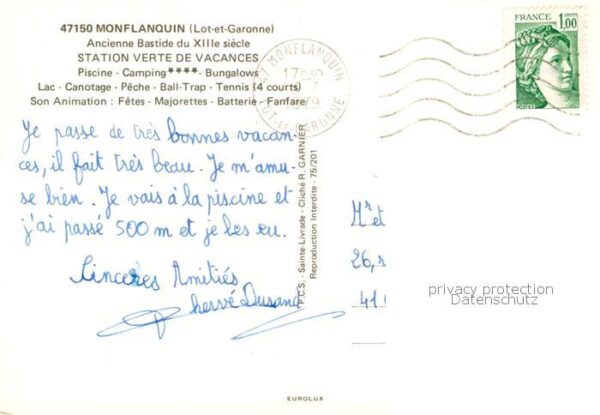 47150 MONFLANQUIN (Lot-et-Garonne)
Ancienne Bastide du XIIIe siècle
STATION VERTE DE VACANCES
Piscine - Camping**** - Bungalows
Lac - Canotage - Pêche - Ball-Trap - Tennis (4 courts)
Son Animation : Fêtes - Majorettes - Batterie - Fanfare
47 MONFLANQUIN
17H
7
79
LOT-ET-GARONNE
FRANCE
1,00
POSTES
Je passe de très bonnes vacan-
ces, il fait très beau. Je m'amu-
se bien. Je vais à la piscine et
j'ai passé 500 m et je les eu.
Sincères Amitiés
hervé Dusand
P.C.S. - Sainte-Livrade - Cliché R. GARNIER
Reproduction Interdite - 75/201
Mr et
26,
41
privacy protection
Datenschutz
EUROLUX